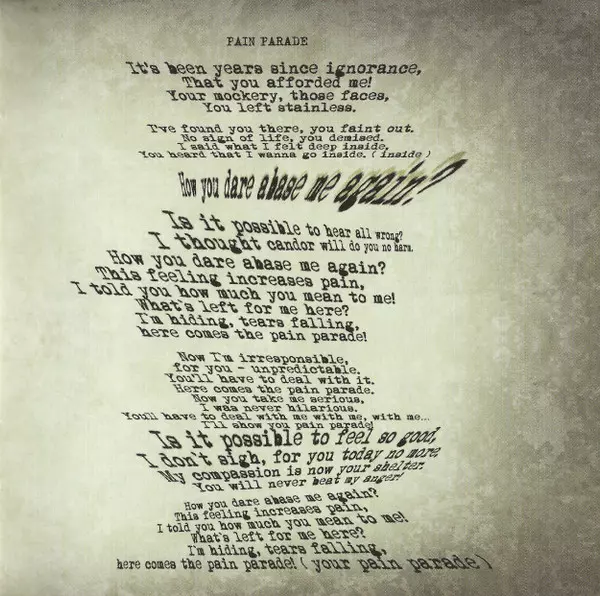 PAIN PARADE
It's been years since ignorance,
That you afforded me!
Your mockery, those faces,
You left stainless.
I've found you there, you faint out.
No sign of life, you demised.
I said what I felt deep inside,
You heard that I wanna go inside. ( inside )
How you dare abase me again?
Is it possible to hear all wrong?
I thought candor will do you no harm.
How you dare abase me again?
This feeling increases pain,
I told you how much you mean to me!
What's left for me here?
I'm hiding, tears falling,
here comes the pain parade!
Now I'm irresponsible,
for you - unpredictable.
You'll have to deal with it.
Here comes the pain parade.
Now you take me serious,
I was never hilarious.
You'll have to deal with me with me, with me...
I'll show you pain parade!
Is it possible to feel so good,
I don't sigh, for you today no more,
My compassion is now your shelter.
You will never beat my anger!
How you dare abase me again?
This feeling increases pain,
I told you how much you mean to me!
What's left for me here?
I'm hiding, tears falling,
here comes the pain parade! ( your pain parade )